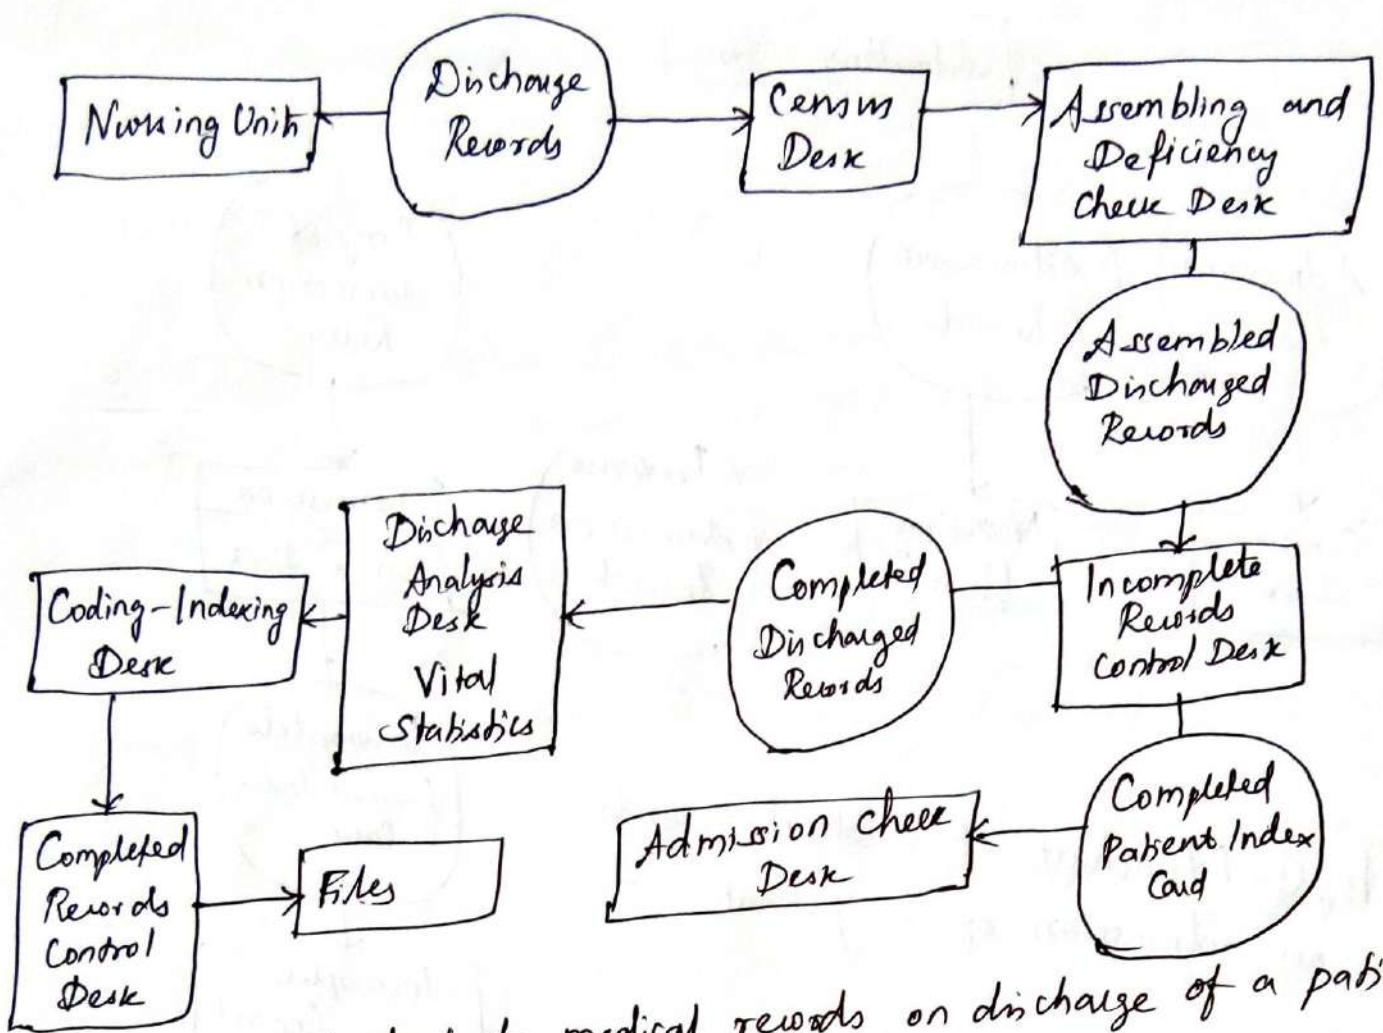 Nursing Unit
Discharge
Records
Census
Desk
Assembling and
Deficiency
Check Desk
Assembled
Discharged
Records
Incomplete
Records
Control Desk
Completed
Discharged
Records
Discharge
Analysis
Desk
Vital
Statistics
Coding-Indexing
Desk
Completed
Patient Index
Card
Admission Check
Desk
Completed
Records
Control
Desk
Files
medical records on discharge of a